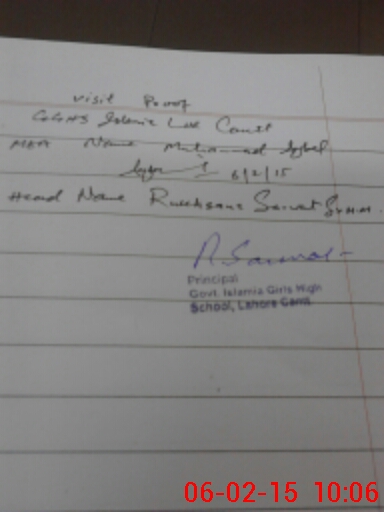 Visit Proof
GGHS Islamia Lhr Cantt
MEA Name Muhammad Iqbal
6/2/15
Head Name Rukhsana Sarwat Sr H.M.
R Sarwat
Principal
Govt. Islamia Girls High
School, Lahore Cantt.
06-02-15 10:06